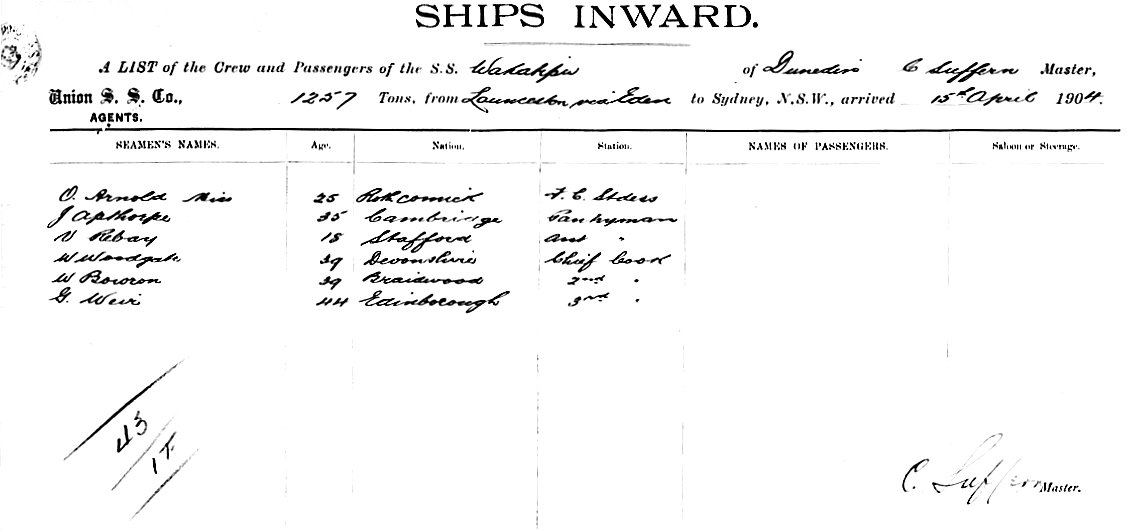 SHIPS INWARD.
A LIST of the Crew and Passengers of the S.S. Wakatipu of Dunedin C Suffern Master,
Union S. S. Co., 1257 Tons, from Launceston via Eden to Sydney, N.S.W., arrived 15th April 1904.
AGENTS.
SEAMEN'S NAMES. Age. Nation. Station. NAMES OF PASSENGERS. Saloon or Steerage.
O. Arnold Miss 25 F. C. Stdess
J Apthorpe 35 Cambridge Pantryman
V Rebay 18 Stafford Asst "
W Woodgate 39 Devonshire Chief Cook
W Bowron 39 Braidwood 2nd "
G. Weir 44 Edinborough 3rd "
43
1 F
C. Suffern Master.